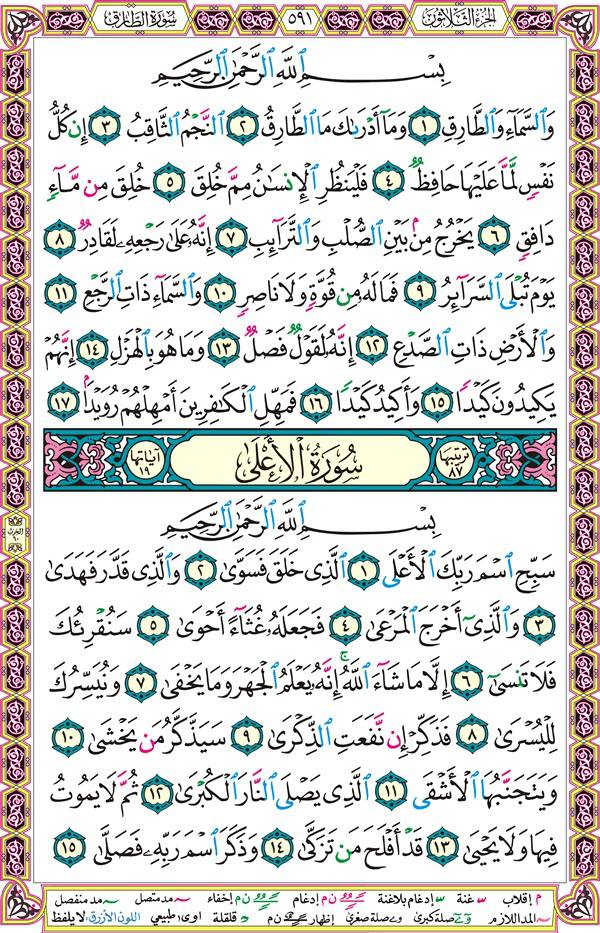 الجزء الثلاثون ٥٩١ سورة الطارق
بِسْمِ ٱللَّهِ ٱلرَّحْمَٰنِ ٱلرَّحِيمِ
وَٱلسَّمَآءِ وَٱلطَّارِقِ ١ وَمَآ أَدْرَىٰكَ مَا ٱلطَّارِقُ ٢ ٱلنَّجْمُ ٱلثَّاقِبُ ٣ إِن كُلُّ
نَفْسٍ لَّمَّا عَلَيْهَا حَافِظٌ ٤ فَلْيَنظُرِ ٱلْإِنسَٰنُ مِمَّ خُلِقَ ٥ خُلِقَ مِن مَّآءٍ
دَافِقٍ ٦ يَخْرُجُ مِنۢ بَيْنِ ٱلصُّلْبِ وَٱلتَّرَآئِبِ ٧ إِنَّهُۥ عَلَىٰ رَجْعِهِۦ لَقَادِرٌ ٨
يَوْمَ تُبْلَى ٱلسَّرَآئِرُ ٩ فَمَا لَهُۥ مِن قُوَّةٍ وَلَا نَاصِرٍ ١٠ وَٱلسَّمَآءِ ذَاتِ ٱلرَّجْعِ ١١
وَٱلْأَرْضِ ذَاتِ ٱلصَّدْعِ ١٢ إِنَّهُۥ لَقَوْلٌ فَصْلٌ ١٣ وَمَا هُوَ بِٱلْهَزْلِ ١٤ إِنَّهُمْ
يَكِيدُونَ كَيْدًا ١٥ وَأَكِيدُ كَيْدًا ١٦ فَمَهِّلِ ٱلْكَٰفِرِينَ أَمْهِلْهُمْ رُوَيْدًۢا ١٧
ترتيبها ٨٧ سُورَةُ الأَعْلَى آياتها ١٩
بِسْمِ ٱللَّهِ ٱلرَّحْمَٰنِ ٱلرَّحِيمِ
سَبِّحِ ٱسْمَ رَبِّكَ ٱلْأَعْلَى ١ ٱلَّذِى خَلَقَ فَسَوَّىٰ ٢ وَٱلَّذِى قَدَّرَ فَهَدَىٰ
٣ وَٱلَّذِىٓ أَخْرَجَ ٱلْمَرْعَىٰ ٤ فَجَعَلَهُۥ غُثَآءً أَحْوَىٰ ٥ سَنُقْرِئُكَ
فَلَا تَنسَىٰٓ ٦ إِلَّا مَا شَآءَ ٱللَّهُ ۚ إِنَّهُۥ يَعْلَمُ ٱلْجَهْرَ وَمَا يَخْفَىٰ ٧ وَنُيَسِّرُكَ
لِلْيُسْرَىٰ ٨ فَذَكِّرْ إِن نَّفَعَتِ ٱلذِّكْرَىٰ ٩ سَيَذَّكَّرُ مَن يَخْشَىٰ ١٠
وَيَتَجَنَّبُهَا ٱلْأَشْقَى ١١ ٱلَّذِى يَصْلَى ٱلنَّارَ ٱلْكُبْرَىٰ ١٢ ثُمَّ لَا يَمُوتُ
فِيهَا وَلَا يَحْيَىٰ ١٣ قَدْ أَفْلَحَ مَن تَزَكَّىٰ ١٤ وَذَكَرَ ٱسْمَ رَبِّهِۦ فَصَلَّىٰ ١٥
م إقلاب غنة إدغام بلاغنة ن م إدغام ن م إخفاء مد متصل مد منفصل
المد اللازم صلة كبرى صلة صغرى إظهار ن م قلقلة اوى طبيعي اللون الأزرق لا يلفظ